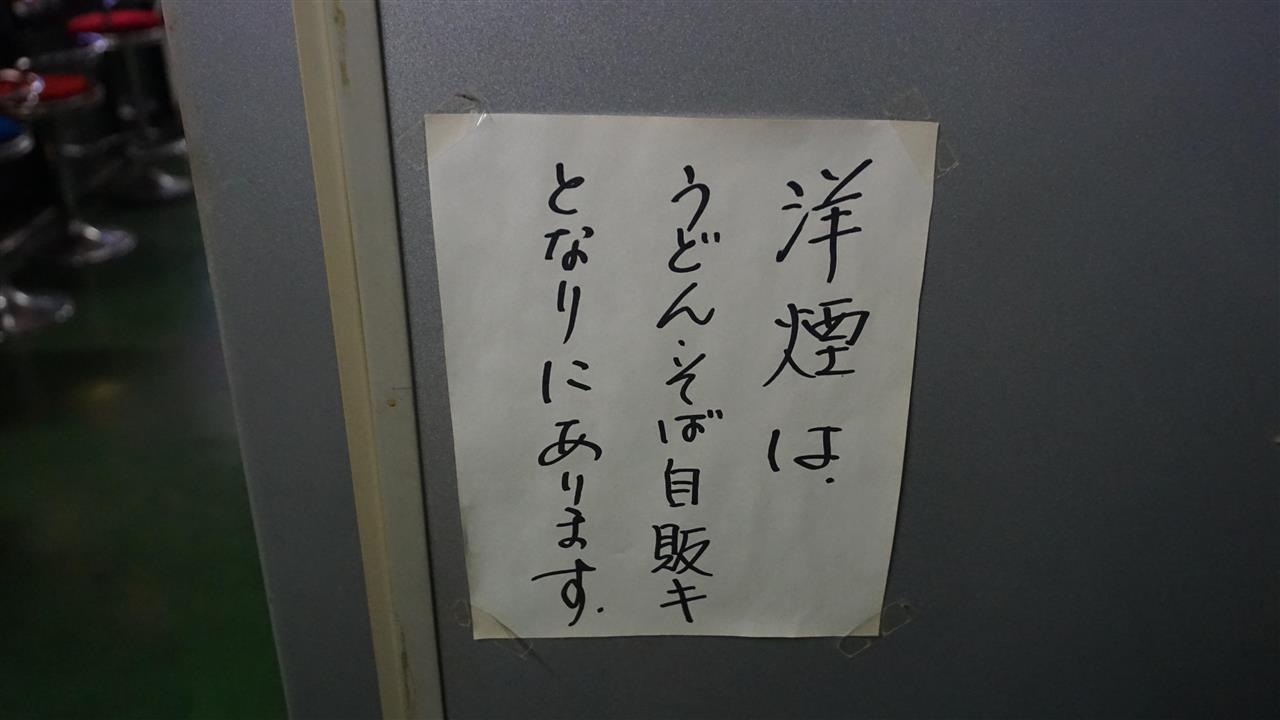 洋煙は.
うどん・そば自販キ
となりにあります.